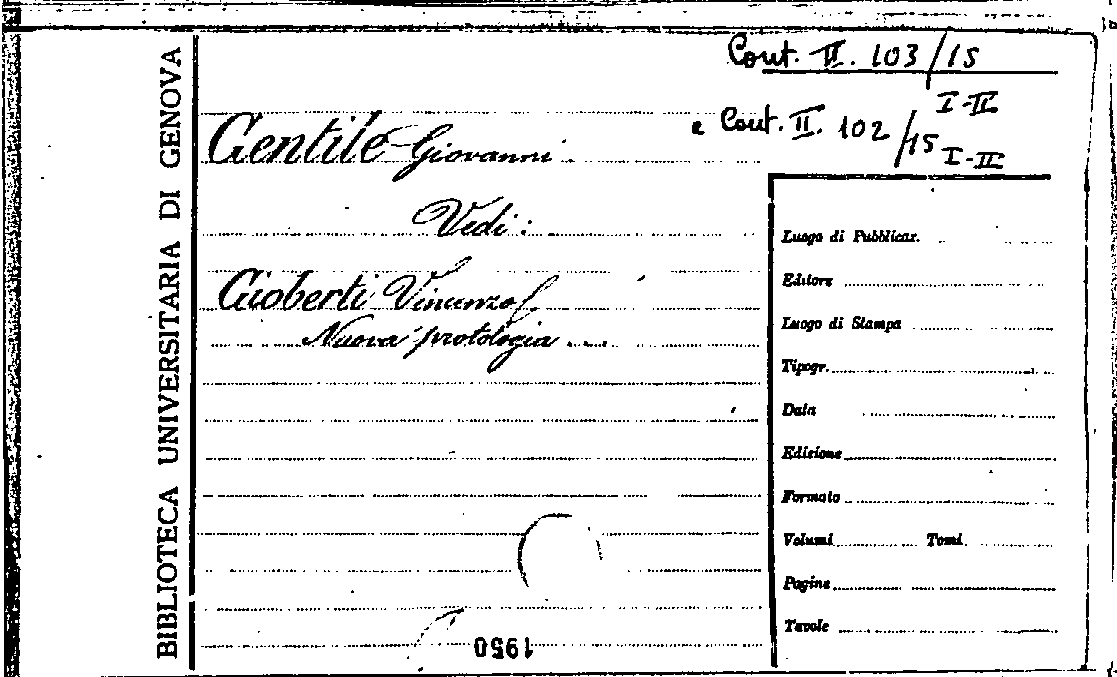 BIBLIOTECA UNIVERSITARIA DI GENOVA
Cout. II. 103/15
I-II
e Cout. II. 102/15 I-II
Gentile Giovanni.
Vedi:
Gioberti Vincenzo
Nuova protologia ...
Luogo di Pubblicaz.
Editore
Luogo di Stampa
Tipogr.
Data
Edizione
Formato
Volumi Tomi
Pagine
Tavole
1950